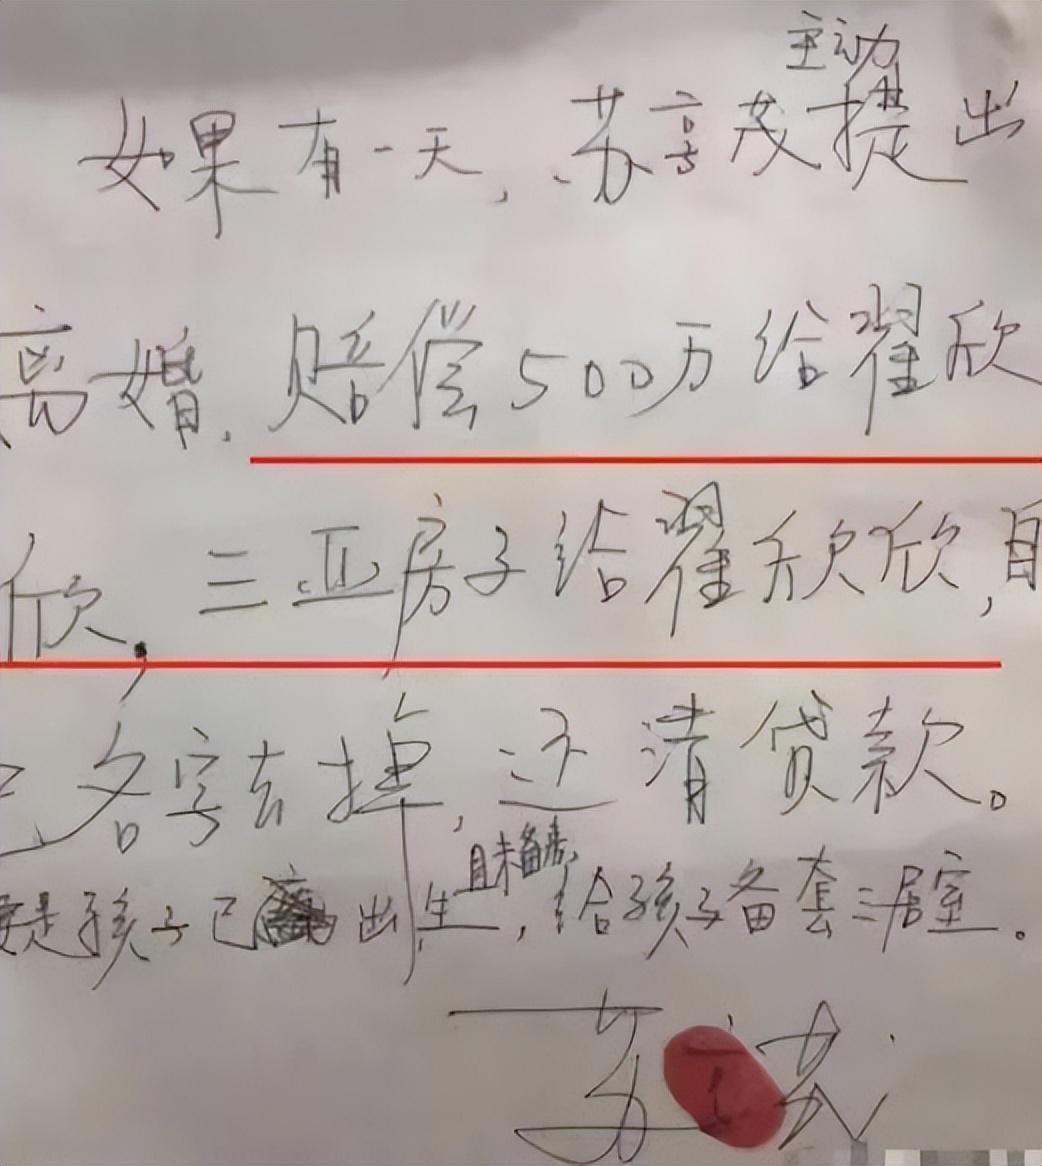 主动
如果有一天，苏享茂提出
离婚，赔偿500万给翟欣
欣，三亚房子给翟欣欣，自
己名字去掉，还清贷款。
且未备房，
要是孩子已出生，给孩子备套三居室。
苏享茂